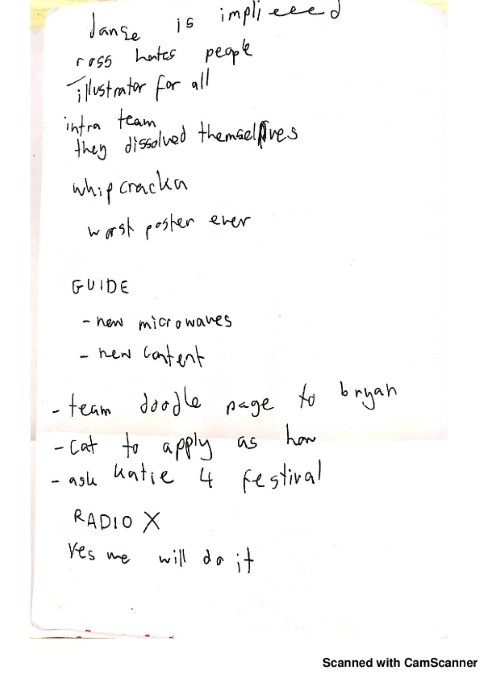 is implieeed
ross hates people
illustrator for all
intra team
they dissolved themselves
whipcracka
worst poster ever
GUIDE
- new microwaves
- new content
- team doodle page to bryan
- cat to apply as how
- ask katie 4 festival
RADIO X
Yes me will do it
Scanned with CamScanner